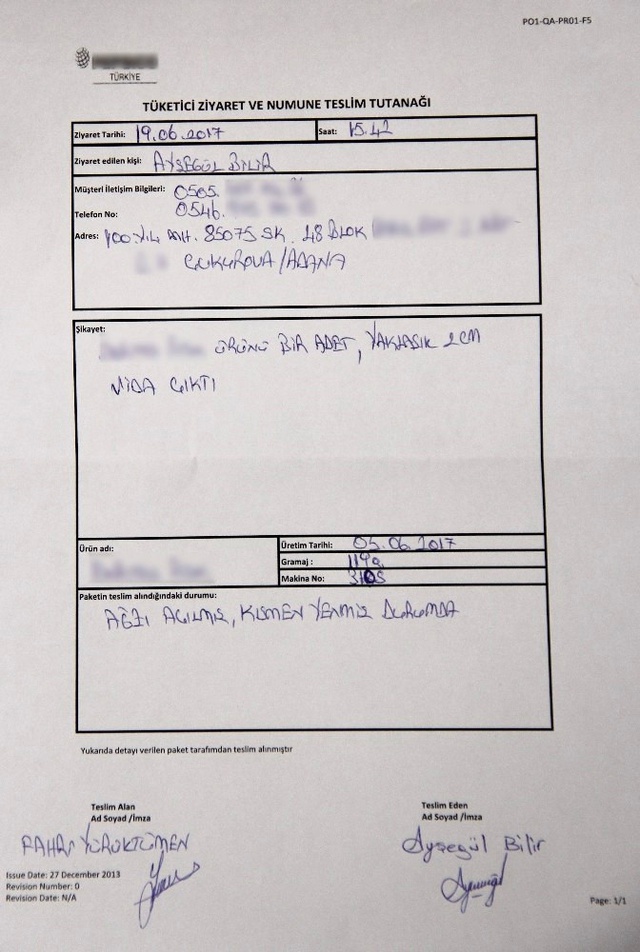 PO1-QA-PR01-F5
TÜRKİYE
TÜKETİCİ ZİYARET VE NUMUNE TESLİM TUTANAĞI
Ziyaret Tarihi: 19.06.2017 Saat: 15.42
Ziyaret edilen kişi: AYŞEGÜL BİLİR
Müşteri İletişim Bilgileri: 0505.
Telefon No: 0546.
Adres: 100.YIL MH. 85075 SK. 18 BLOK
ÇUKUROVA/ADANA
Şikayet:
ÜRÜNÜ BİR ADET, YAKLAŞIK 2CM
VİDA ÇIKTI
Ürün adı:
Üretim Tarihi: 05.06.2017
Gramaj : 119g
Makina No: 3105
Paketin teslim alındığındaki durumu:
AĞZI AÇILMIŞ, KISMEN YENMİŞ DURUMDA
Yukarıda detayı verilen paket tarafımdan teslim alınmıştır
Teslim Alan
Ad Soyad /İmza
YÜRÜKTÜMEN
Teslim Eden
Ad Soyad /İmza
Ayşegül Bilir
Issue Date: 27 December 2013
Revision Number: 0
Revision Date: N/A
Page: 1/1